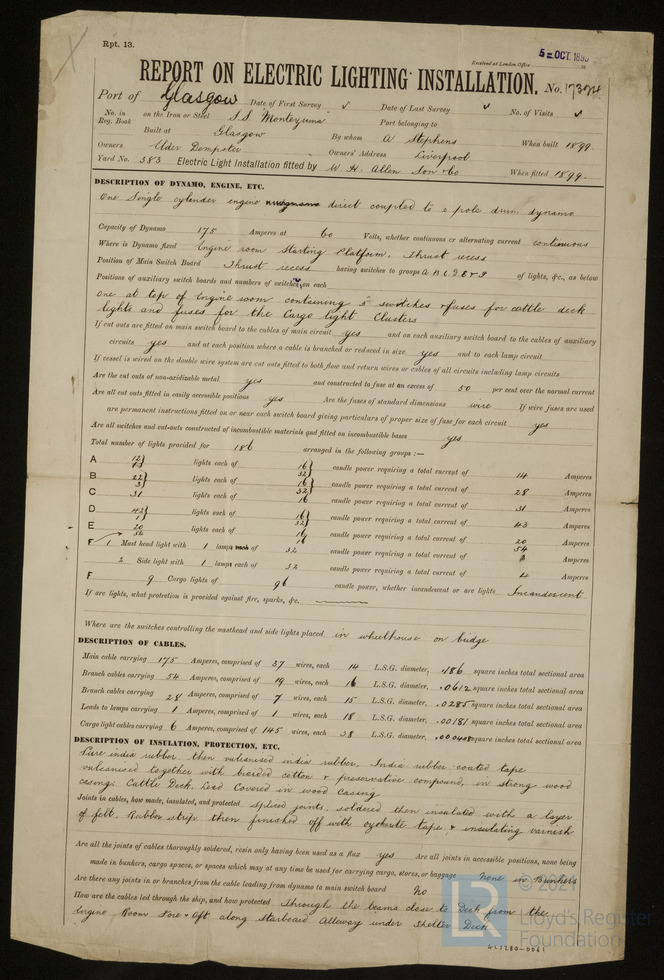 Rpt. 13.
5 = OCT. 189
Received at London Office
REPORT ON ELECTRIC LIGHTING INSTALLATION. No. 17374
Port of Glasgow Date of First Survey ✓ Date of Last Survey ✓ No. of Visits ✓
No. in Reg. Book on the Iron or Steel S.S. Montezuma Port belonging to
Built at Glasgow By whom A Stephens When built 1899
Owners Elder Dempster Owners' Address Liverpool
Yard No. 383 Electric Light Installation fitted by W. H. Allen Son & Co When fitted 1899
DESCRIPTION OF DYNAMO, ENGINE, ETC.
One Single cylender engine direct coupled to 2 pole drum dynamo
Capacity of Dynamo 175 Amperes at 60 Volts, whether continuous or alternating current continuous
Where is Dynamo fixed Engine room Starting Platform, Thrust recess
Position of Main Switch Board Thrust recess having switches to groups A B C D E & F of lights, &c., as below
Positions of auxiliary switch boards and numbers of switches on each
One at top of Engine room containing 5 switches & fuses for cattle deck
lights and fuses for the Cargo light Clusters
If cut outs are fitted on main switch board to the cables of main circuit yes and on each auxiliary switch board to the cables of auxiliary
circuits yes and at each position where a cable is branched or reduced in size yes and to each lamp circuit
If vessel is wired on the double wire system are cut outs fitted to both flow and return wires or cables of all circuits including lamp circuits
Are the cut outs of non-oxidizable metal yes and constructed to fuse at an excess of 50 per cent over the normal current
Are all cut outs fitted in easily accessible positions yes Are the fuses of standard dimensions wire If wire fuses are used
are permanent instructions fitted on or near each switch board giving particulars of proper size of fuse for each circuit yes
Are all switches and cut-outs constructed of incombustible materials and fitted on incombustible bases yes
Total number of lights provided for 186 arranged in the following groups :—
A 12 lights each of 16 32 candle power requiring a total current of 14 Amperes
B 22 3 lights each of 16 32 candle power requiring a total current of 28 Amperes
C 31 lights each of 16 candle power requiring a total current of 31 Amperes
D 42 1 lights each of 16 32 candle power requiring a total current of 43 Amperes
E 20 lights each of 16 candle power requiring a total current of 20 54 Amperes
F 1 Mast head light with 1 lamps each of 32 candle power requiring a total current of Amperes
2 Side light with 1 lamps each of 32 candle power requiring a total current of 4 Amperes
F 9 Cargo lights of 96 candle power, whether incandescent or arc lights Incandescent
If arc lights, what protection is provided against fire, sparks, &c.
Where are the switches controlling the masthead and side lights placed in wheelhouse on bridge
DESCRIPTION OF CABLES.
Main cable carrying 175 Amperes, comprised of 37 wires, each 14 L.S.G. diameter, .186 square inches total sectional area
Branch cables carrying 54 Amperes, comprised of 19 wires, each 16 L.S.G. diameter, .0612 square inches total sectional area
Branch cables carrying 28 Amperes, comprised of 7 wires, each 15 L.S.G. diameter, .0285 square inches total sectional area
Leads to lamps carrying 1 Amperes, comprised of 1 wires, each 18 L.S.G. diameter, .00181 square inches total sectional area
Cargo light cables carrying 6 Amperes, comprised of 145 wires, each 38 L.S.G. diameter, square inches total sectional area
DESCRIPTION OF INSULATION, PROTECTION, ETC.
Pure india rubber, then vulcanised india rubber, India rubber coated tape
vulcanised together with braided cotton & preservative compound, in strong wood
casing. Cattle Deck. Lead Covered in wood casing
Joints in cables, how made, insulated, and protected spliced joints, soldered then insulated with a layer
of felt. Rubber strip then finished off with ozokerite tape & insulating varnish
Are all the joints of cables thoroughly soldered, resin only having been used as a flux yes Are all joints in accessible positions, none being
made in bunkers, cargo spaces, or spaces which may at any time be used for carrying cargo, stores, or baggage None in Bunkers
Are there any joints in or branches from the cable leading from dynamo to main switch board No
How are the cables led through the ship, and how protected Through the beams close to Deck from the
Engine Room Fore & Aft along Starboard Alleway under Shelter Deck
© 2021
LR
Lloyd's Register
Foundation